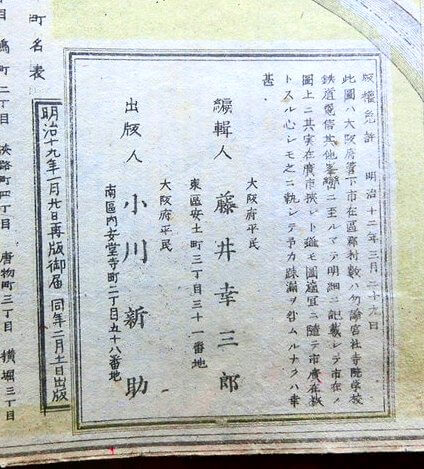 版權免許 明治十二年三月二十九日
此圖ハ大阪府管下市在區郡村數ハ勿論官社寺院学校
鉄道電信其他
ニ至ルマテ明細ニ記載シテ市在ノ
圖上ニ其実在廣市狹シト
モ圖
ニ隨テ市廣在狹
トスル心レモ之ニ
レテ予カ疎漏ヲ
ムルナクハ幸
甚
編輯人
大阪府平民
藤井幸三郎
東區安土町三丁目三十一番地
出版人
大阪府平民
小川新助
南區内安堂寺町二丁目五十八番地
明治十九年一月廿日再版御届 同年二月十一日出版
町名表
淡路町四丁目
唐物町三丁目
横堀三丁目
町二丁目